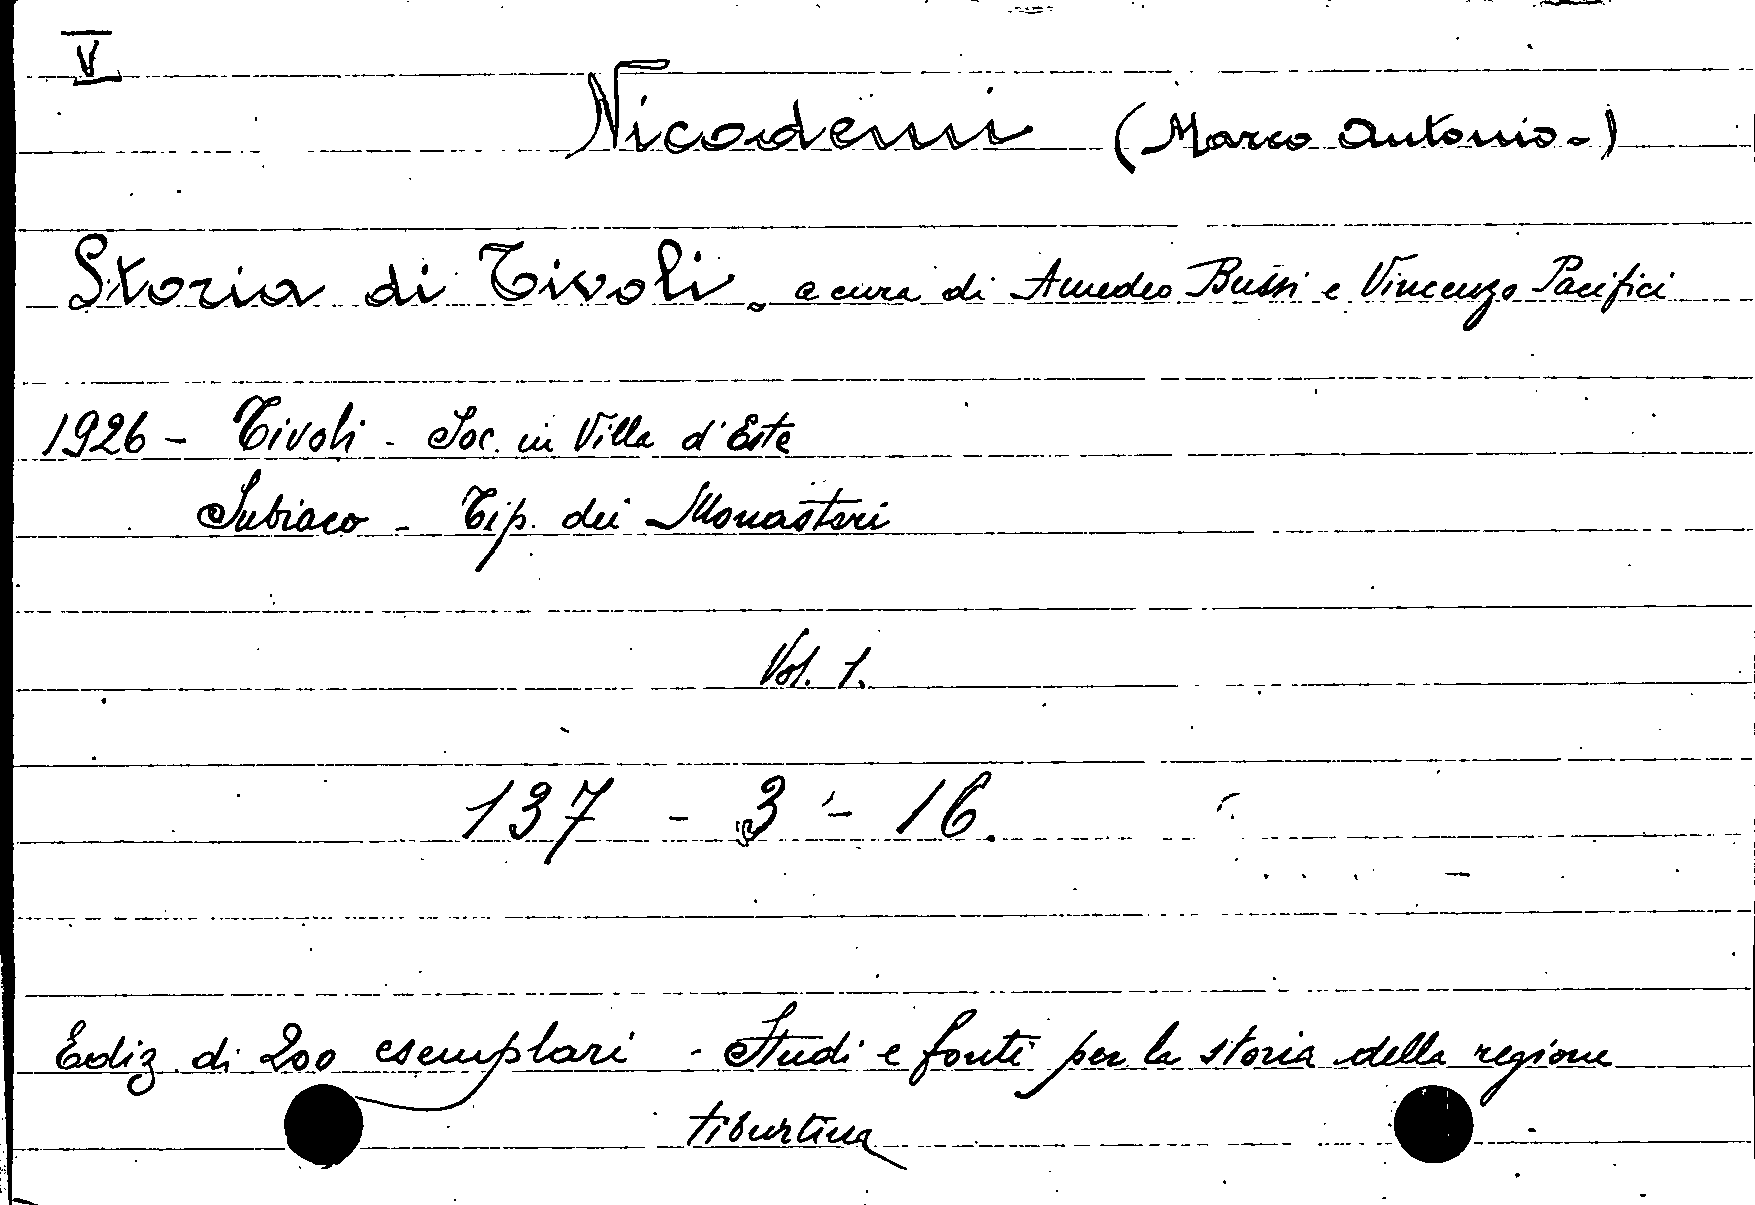 V
Nicodemi (Marco Antonio-)
Storia di Tivoli. a cura di Amedeo Bussi e Vincenzo Pacifici
1926 - Tivoli - Soc. in Villa d'Este
Subiaco - Tip. dei Monasteri
Vol. 1.
137 - 3 - 16.
Ediz. di 200 esemplari - Studi e fonti per la storia della regione
tiburtina